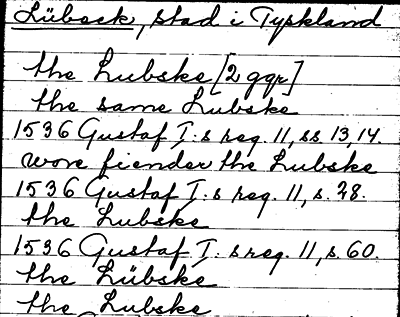 Lübeck, stad i Tyskland
the Lubske [2 ggr]
the same Lubske
1536 Gustaf I:s reg. 11, ss. 13, 14.
wore fiender the Lubske
1536 Gustaf I:s reg. 11, s. 28.
the Lubske
1536 Gustaf I:s reg. 11, s. 60.
the Lübske
the Lubske